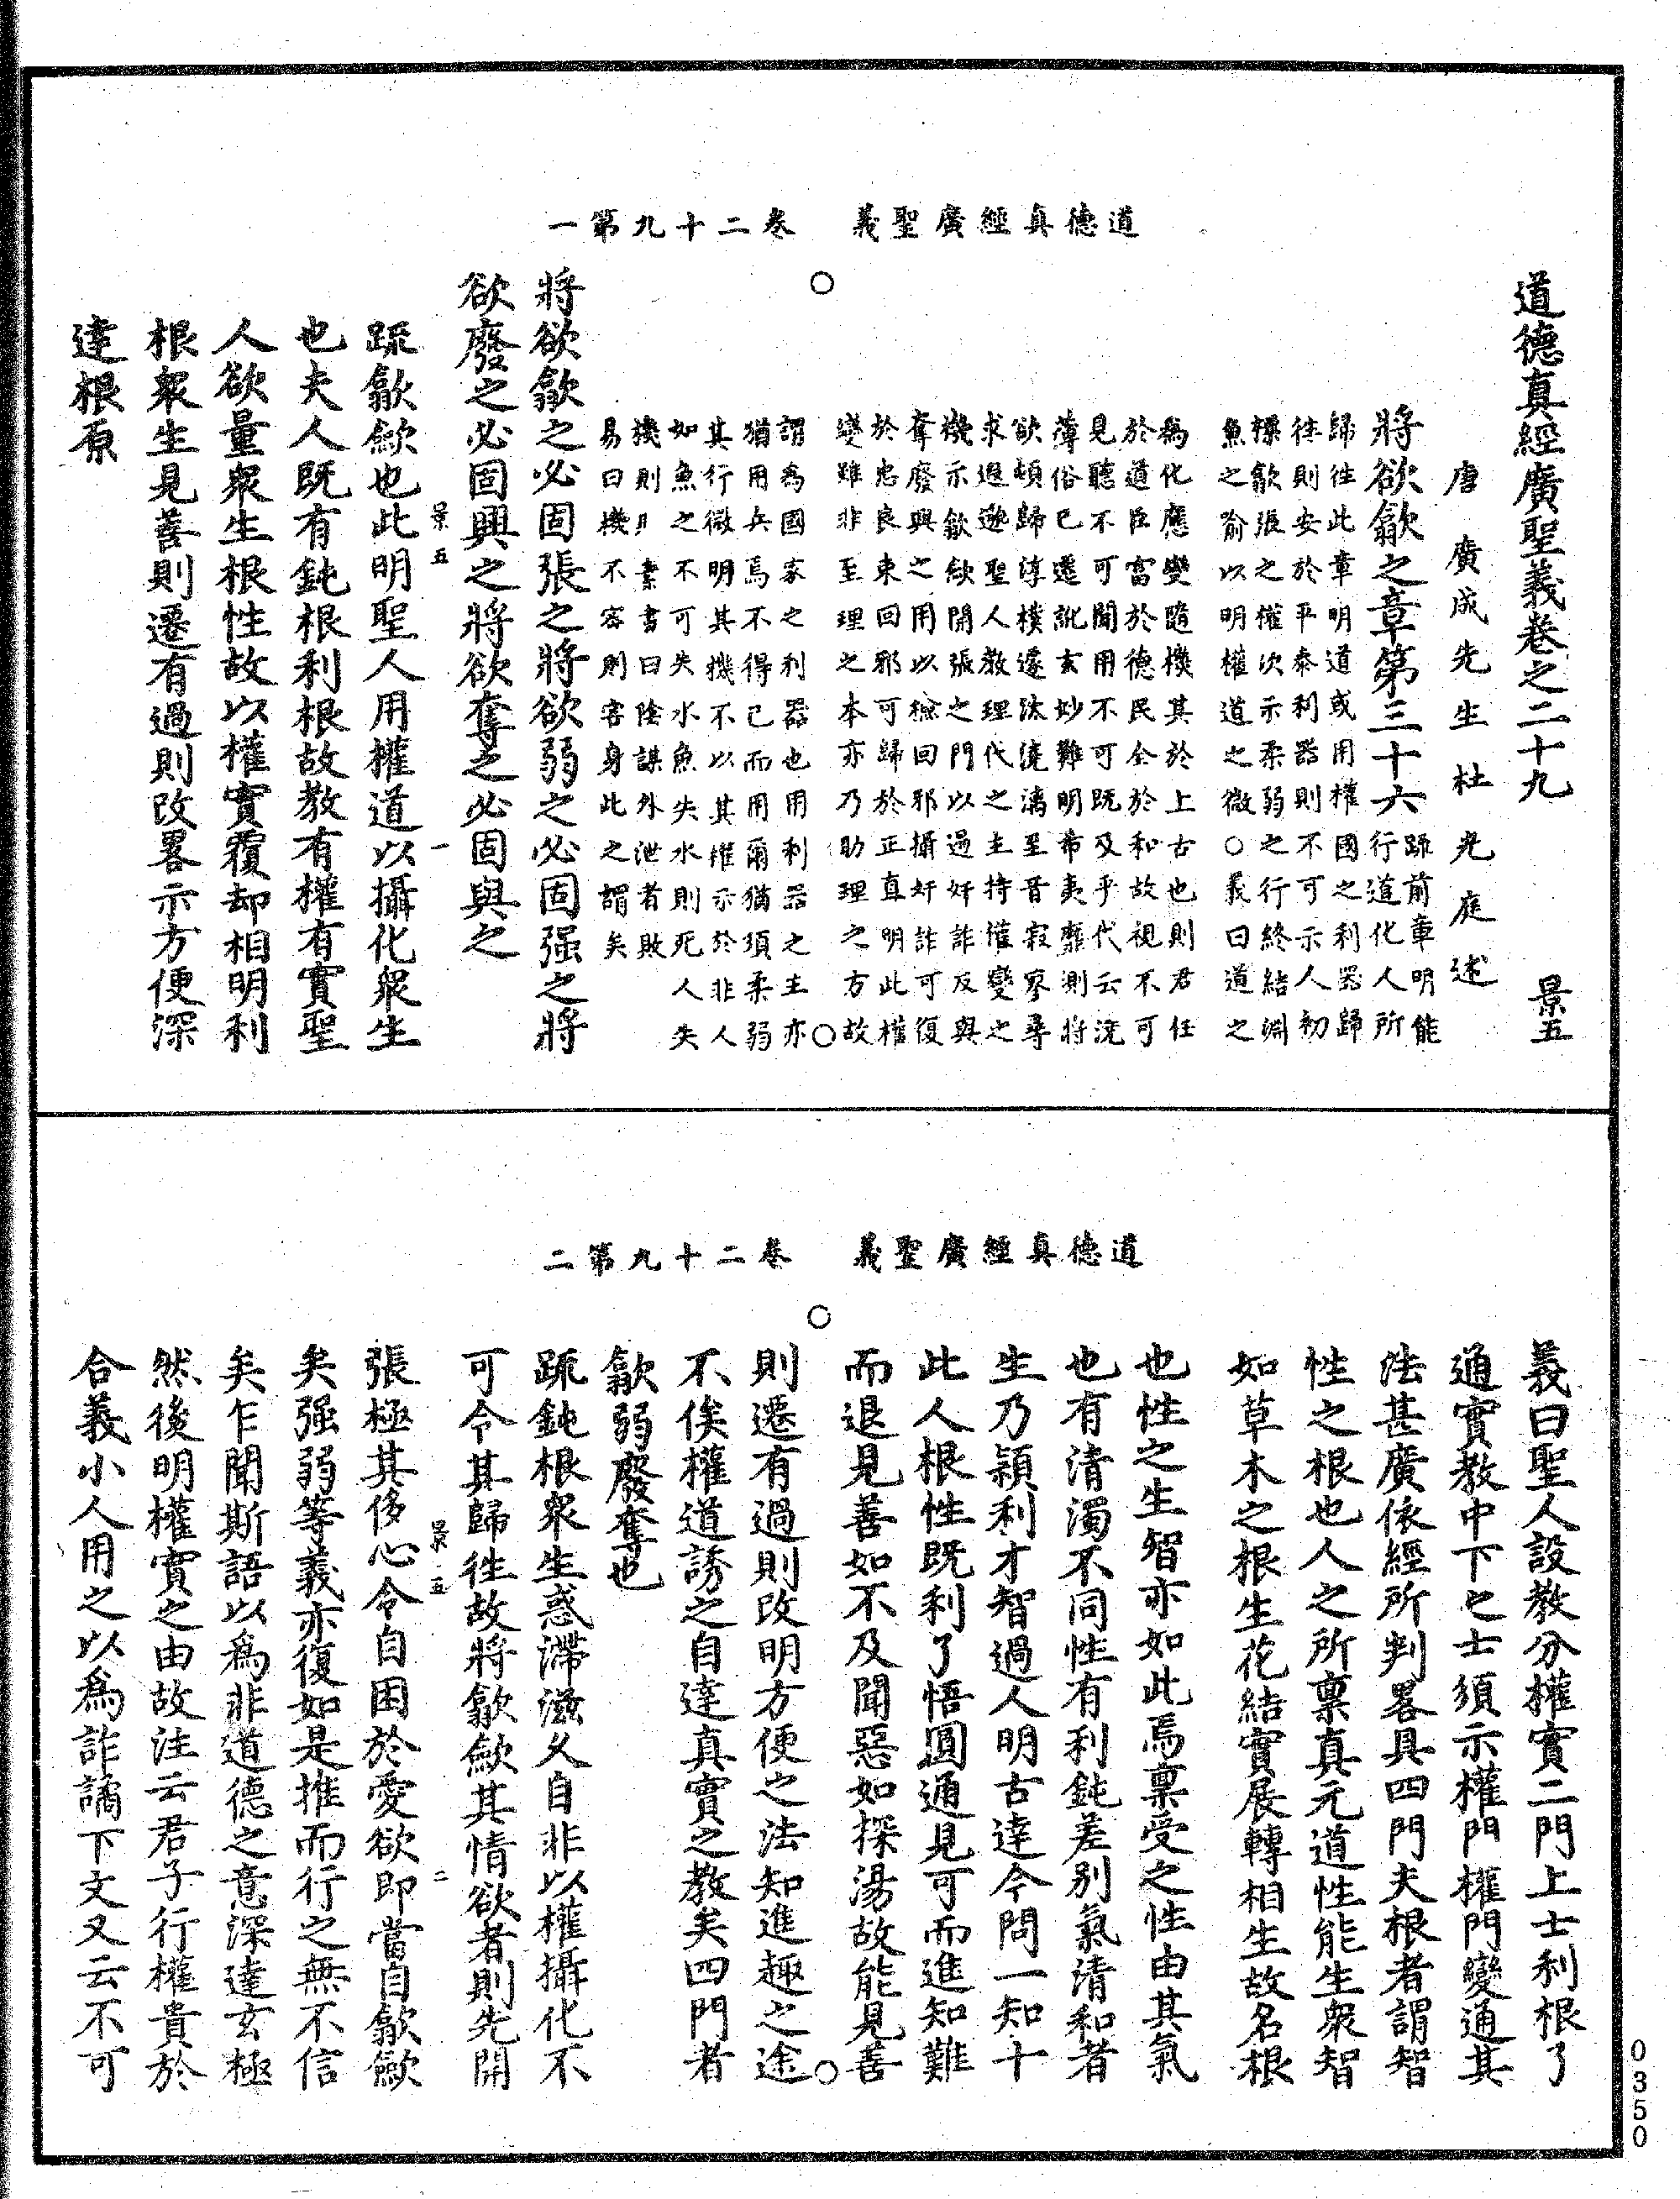 道德真經廣聖義　卷二十九第一
道德真經廣聖義卷之二十九　景五
唐廣成先生杜光庭述
將欲歙之章第三十六疏前章明能
行道化人所
歸往此章明道或用權國之利器歸
往則安於平泰利器則不可示人初
標歙張之權次示柔弱之行終結淵
魚之喻以明權道之微○義曰道之
為化應變隨機其於上古也則君任
於道臣富於德民全於和故視不可
見聽不可聞用不可既及乎代云澆
薄俗已遷訛玄妙難明希夷靡測將
欲頓歸淳樸遽汰澆漓至音寂寥尋
求遐邈聖人教理代之主持權變之
機示歙歛開張之門以過奸詐反與
奪廢興之用以檢回邪攝奸詐可復
於忠良束回邪可歸於正真明此權
變雖非至理之本亦乃助理之方故
謂為國家之利器也用利器之主亦
猶用兵焉不得已而用爾猶須柔弱
其行微明其機不以其權示於非人
如魚之不可失水魚失水則死人失
機則素書曰陰謀外泄者敗
易曰機不容則害身此之謂矣
將欲歙之必固張之將欲弱之必固强之將
欲廢之必固興之將欲奪之必固與之
景五　一
疏歙歛也此明聖人用權道以攝化衆生
也夫人既有鈍根利根故教有權有實聖
人欲量衆生根性故以權實覆却相明利
根衆生見善則遷有過則改畧示方便深
達根原
道德真經廣聖義　卷二十九第二
義曰聖人設教分權實二門上士利根了
通實教中下之士須示權門權門變通其
法甚廣依經所判畧具四門夫根者謂智
性之根也人之所禀真元道性能生衆智
如草木之根生花結實展轉相生故名根
也性之生智亦如此焉禀受之性由其氣
也有清濁不同性有利鈍差别氣清和者
生乃穎利才智過人明古達今問一知十
此人根性既利了悟圓通見可而進知難
而退見善如不及聞惡如探湯故能見善
則遷有過則改明方便之法知進趣之途
不俟權道誘之自達真實之教矣四門者
歙弱廢奪也
疏鈍根衆生惑滯滋久自非以權攝化不
可令其歸往故將歙歛其情欲者則先開
景五　二
張極其侈心令自困於愛欲即當自歙歛
矣强弱等義亦復如是推而行之無不信
矣乍聞斯語以為非道德之意深達玄極
然後明權實之由故注云君子行權貴於
合義小人用之以為詐譎下文又云不可
0350